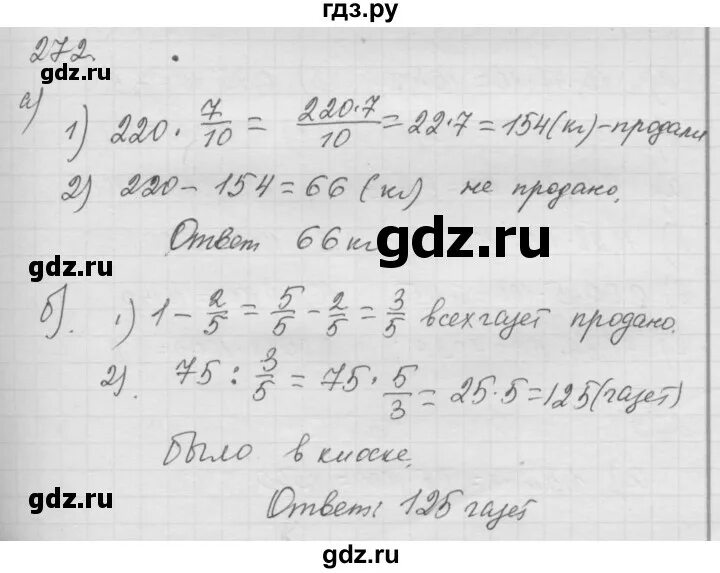 гдз.ру
272.
gdz.ru
а)
1) 220 · 7/10 = 220·7/10 = 22·7 = 154 (кг) – продали
2) 220 – 154 = 66 (кг) не продано.
Ответ 66 кг
gdz.ru
б). 1) 1 – 2/5 = 5/5 – 2/5 = 3/5 всех газет продано.
2). 75 : 3/5 = 75 · 5/3 = 25·5 = 125 (газет)
было в киоске.
gdz.ru
gdz.ru
Ответ: 125 газет
gdz.ru